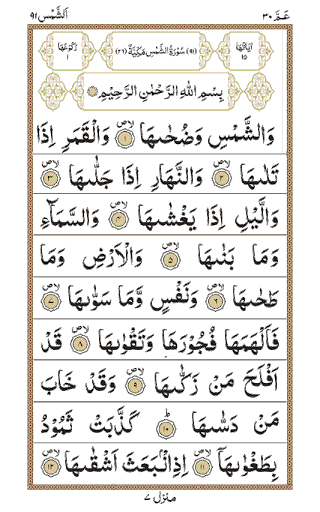 عَمَّ ٣٠ اَلشَّمْس ٩١
اٰيَاتُهَا ١٥ (٩١) سُوْرَةُ الشَّمْسِ مَكِّيَّةٌ (٢٦) رُكُوْعُهَا ١
بِسْمِ اللّٰهِ الرَّحْمٰنِ الرَّحِيْمِ
وَالشَّمْسِ وَضُحٰىهَا ۙ‏﴿١﴾ وَالْقَمَرِ اِذَا
تَلٰىهَا ۙ‏﴿٢﴾ وَالنَّهَارِ اِذَا جَلّٰىهَا ۙ‏﴿٣﴾
وَالَّيْلِ اِذَا يَغْشٰىهَا ۙ‏﴿٤﴾ وَالسَّمَآءِ
وَمَا بَنٰىهَا ۙ‏﴿٥﴾ وَالْاَرْضِ وَمَا
طَحٰىهَا ۙ‏﴿٦﴾ وَنَفْسٍ وَّمَا سَوّٰىهَا ۙ‏﴿٧﴾
فَاَلْهَمَهَا فُجُوْرَهَا وَتَقْوٰىهَا ۙ‏﴿٨﴾ قَدْ
اَفْلَحَ مَنْ زَكّٰىهَا ۙ‏﴿٩﴾ وَقَدْ خَابَ
مَنْ دَسّٰىهَا ؕ‏﴿١٠﴾ كَذَّبَتْ ثَمُوْدُ
بِطَغْوٰىهَاۤ ۙ‏﴿١١﴾ اِذِانْۢبَعَثَ اَشْقٰىهَا ۙ‏﴿١٢﴾
منزل ٧